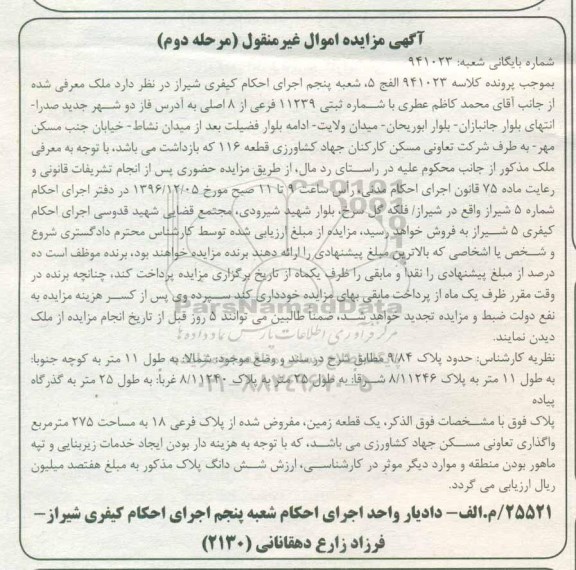 آگهی مزایده اموال غیرمنقول (مرحله دوم)
شماره بایگانی شعبه: ۹۴۱۰۲۳
بموجب پرونده کلاسه ۹۴۱۰۲۳ الفج ۵، شعبه پنجم اجرای احکام کیفری شیراز در نظر دارد ملک معرفی شده
از جانب آقای محمد کاظم عطری با شماره ثبتی ۱۱۲۳۹ فرعی از ۸ اصلی به آدرس فاز دو شهر جدید صدرا-
انتهای بلوار جانبازان- بلوار ابوریحان- میدان ولایت- ادامه بلوار فضیلت بعد از میدان نشاط- خیابان جنب مسکن
مهر- به طرف شرکت تعاونی مسکن کارکنان جهاد کشاورزی قطعه ۱۱۶ که بازداشت می باشد، با توجه به معرفی
ملک مذکور از جانب محکوم علیه در راستای رد مال، از طریق مزایده حضوری پس از انجام تشریفات قانونی و
رعایت ماده ۷۵ قانون اجرای احکام مدنی، راس ساعت ۹ تا ۱۱ صبح مورخ ۱۳۹۶/۱۲/۰۵ در دفتر اجرای احکام
شماره ۵ شیراز واقع در شیراز/ فلکه گل سرخ، بلوار شهید شیرودی، مجتمع قضایی شهید قدوسی اجرای احکام
کیفری ۵ شیراز به فروش خواهد رسید، مزایده از مبلغ ارزیابی شده توسط کارشناس محترم دادگستری شروع
و شخص یا اشخاصی که بالاترین مبلغ پیشنهادی را ارائه دهند برنده مزایده خواهند بود، برنده موظف است ده
درصد از مبلغ پیشنهادی را نقدا و مابقی را ظرف یکماه از تاریخ برگزاری مزایده پرداخت کند، چنانچه برنده در
وقت مقرر ظرف یک ماه از پرداخت مابقی بهای مزایده خودداری کند سپرده وی پس از کسر هزینه مزایده به
نفع دولت ضبط و مزایده تجدید خواهد شد، ضمنا طالبین می توانند ۵ روز قبل از تاریخ انجام مزایده از ملک
دیدن نمایند.
نظریه کارشناس: حدود پلاک ۹/۸۴ مطابق شرح در سند و وضع موجود: شمالا: به طول ۱۱ متر به کوچه جنوبا:
به طول ۱۱ متر به پلاک ۸/۱۱۲۴۶ شرقا: به طول ۲۵ متر به پلاک ۸/۱۱۲۴۰ غربا: به طول ۲۵ متر به گذرگاه
پیاده
پلاک فوق با مشخصات فوق الذکر، یک قطعه زمین، مفروض شده از پلاک فرعی ۱۸ به مساحت ۲۷۵ مترمربع
واگذاری تعاونی مسکن جهاد کشاورزی می باشد، که با توجه به هزینه دار بودن ایجاد خدمات زیربنایی و تپه
ماهور بودن منطقه و موارد دیگر موثر در کارشناسی، ارزش شش دانگ پلاک مذکور به مبلغ هفتصد میلیون
ریال ارزیابی می گردد.
۲۵۵۲۱/م.الف- دادیار واحد اجرای احکام شعبه پنجم اجرای احکام کیفری شیراز-
فرزاد زارع دهقانانی (۲۱۳۰)